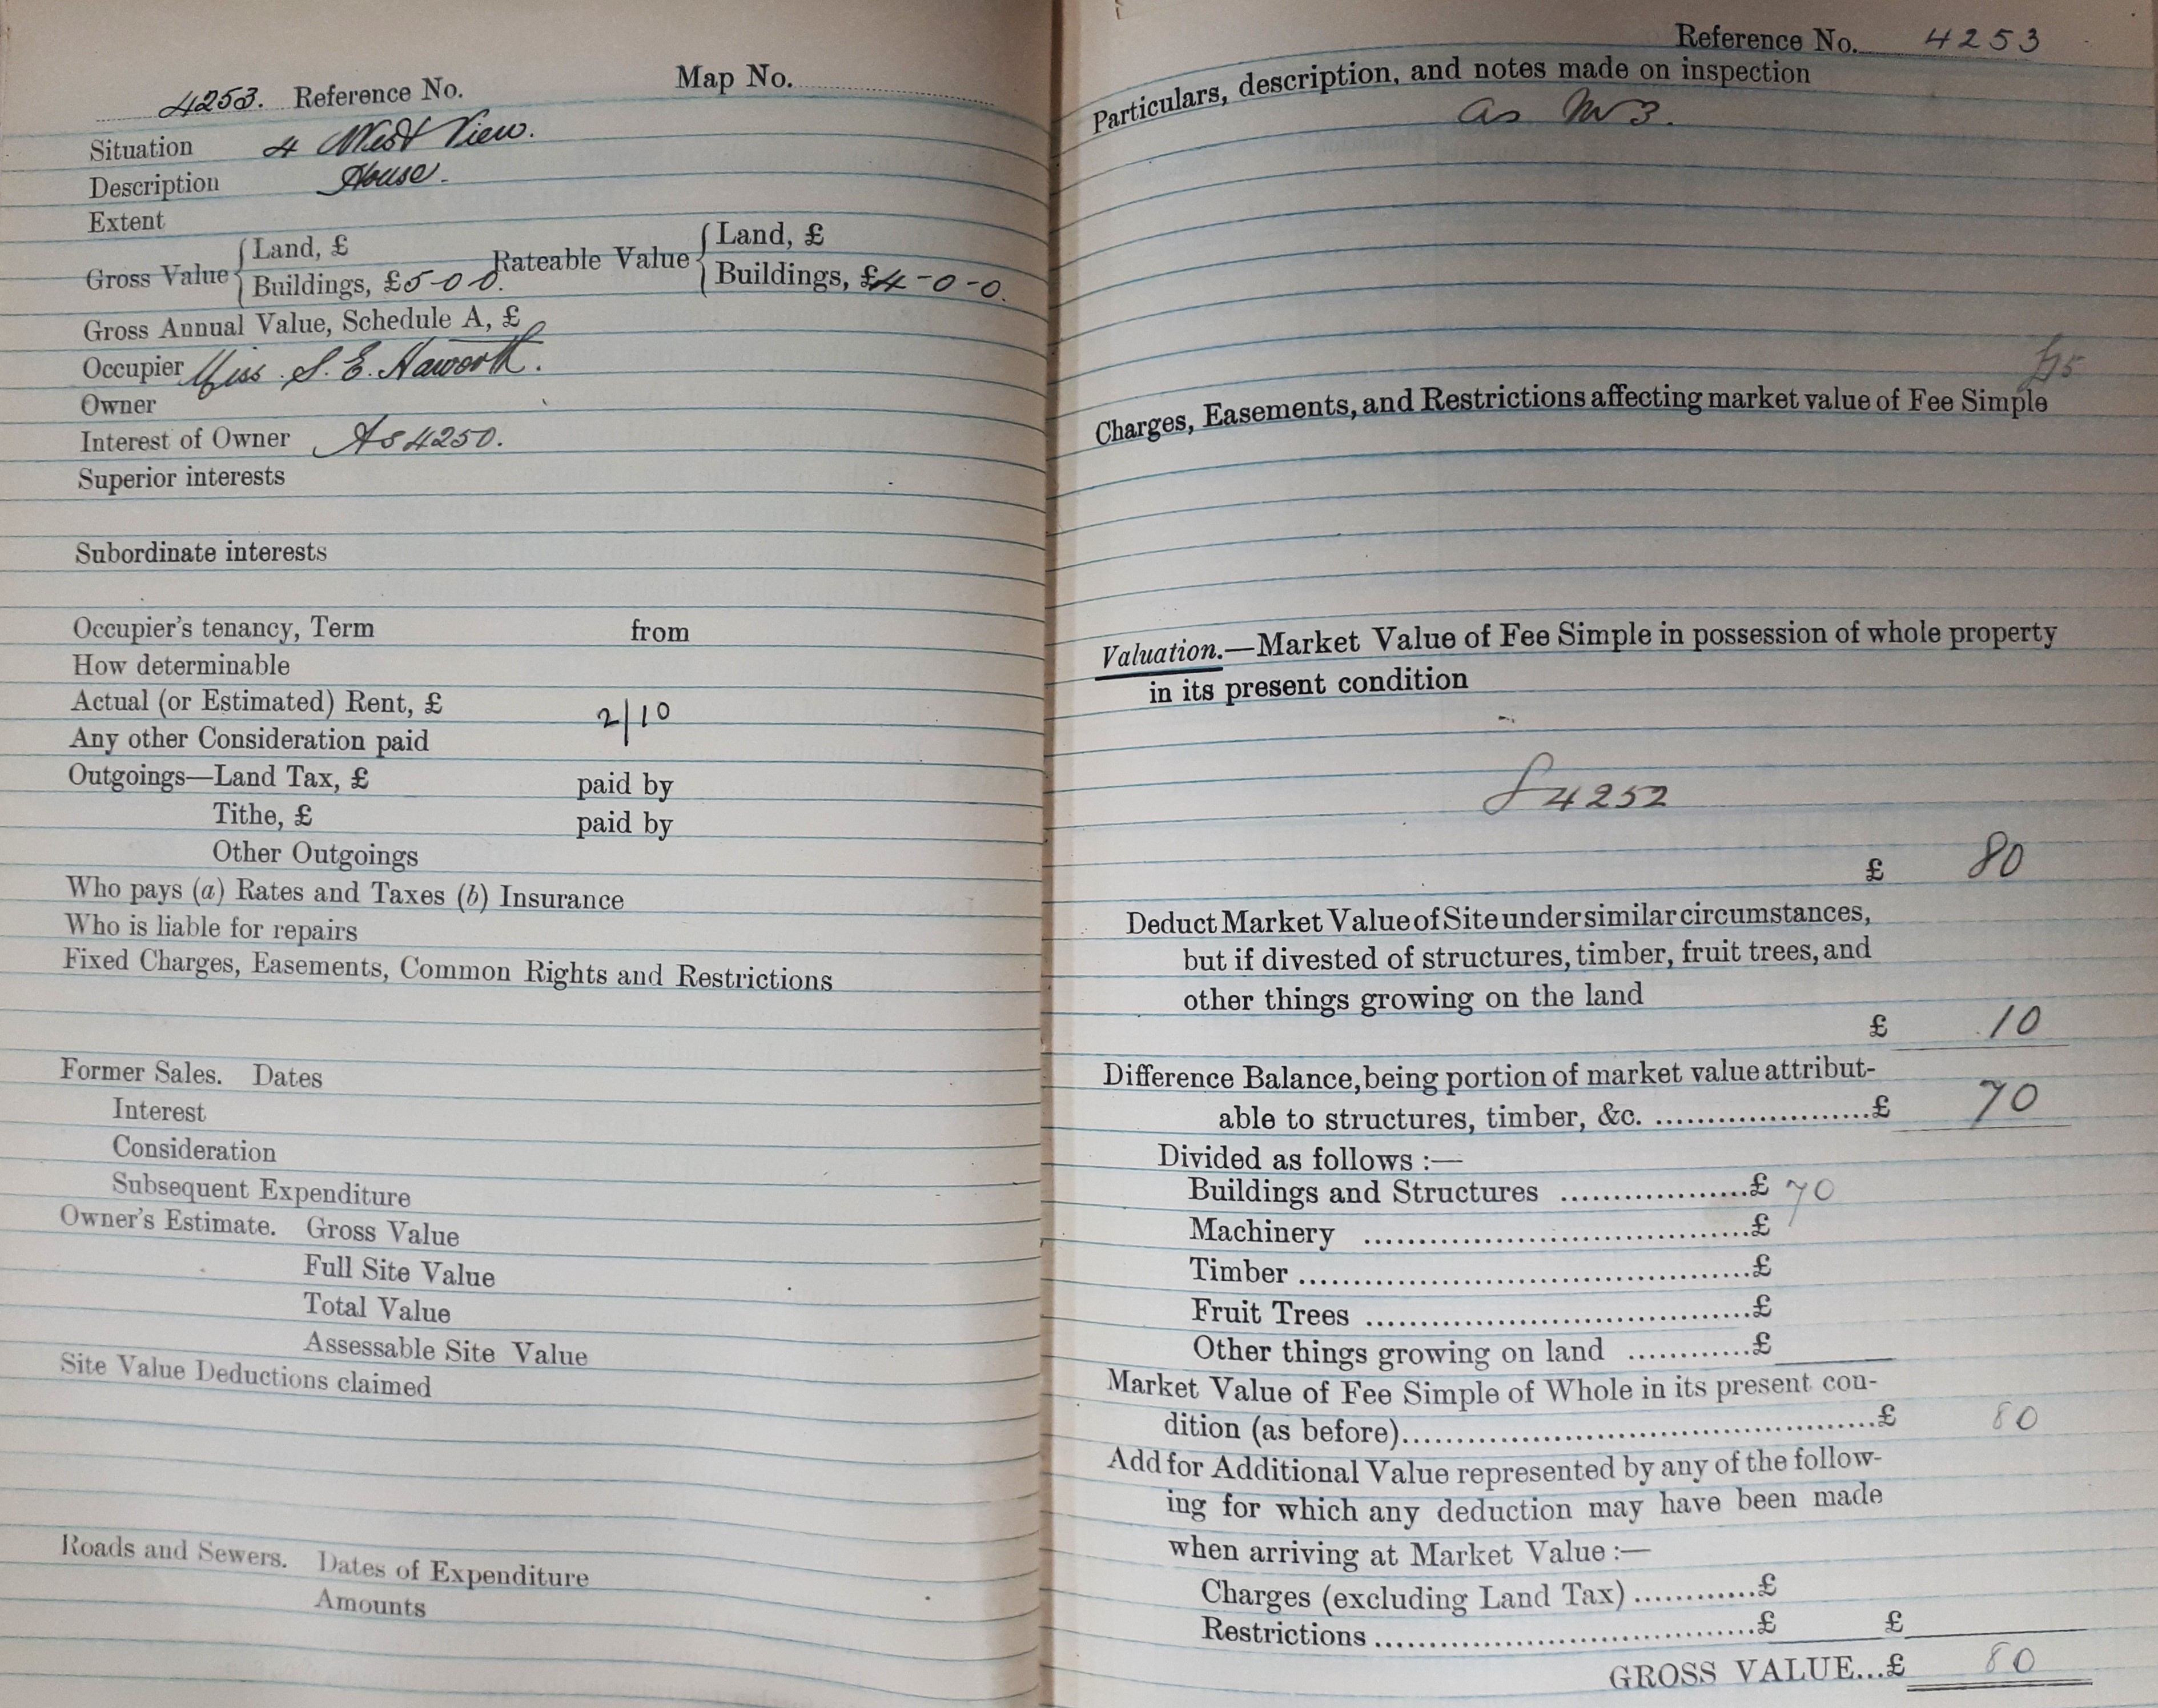 4253. Reference No. Map No.
Situation 4 West View.
Description House.
Extent
Gross Value { Land, £
Buildings, £5-0-0. Rateable Value { Land, £
Buildings, £4-0-0.
Gross Annual Value, Schedule A, £
Occupier Miss. S. E. Haworth.
Owner
Interest of Owner As 4250.
Superior interests
Subordinate interests
Occupier's tenancy, Term from
How determinable
Actual (or Estimated) Rent, £ 2/10
Any other Consideration paid
Outgoings—Land Tax, £ paid by
Tithe, £ paid by
Other Outgoings
Who pays (a) Rates and Taxes (b) Insurance
Who is liable for repairs
Fixed Charges, Easements, Common Rights and Restrictions
Former Sales. Dates
Interest
Consideration
Subsequent Expenditure
Owner's Estimate. Gross Value
Full Site Value
Total Value
Assessable Site Value
Site Value Deductions claimed
Roads and Sewers. Dates of Expenditure
Amounts
Reference No. 4253
Particulars, description, and notes made on inspection
as No 3.
Charges, Easements, and Restrictions affecting market value of Fee Simple
Valuation.—Market Value of Fee Simple in possession of whole property
in its present condition
4252
£ 80
Deduct Market Value of Site under similar circumstances,
but if divested of structures, timber, fruit trees, and
other things growing on the land
£ 10
Difference Balance, being portion of market value attribut-
able to structures, timber, &c. ....................£ 70
Divided as follows :—
Buildings and Structures ..................£ 70
Machinery ....................................£
Timber ..........................................£
Fruit Trees ....................................£
Other things growing on land ............£
Market Value of Fee Simple of Whole in its present con-
dition (as before)..............................................£ 80
Add for Additional Value represented by any of the follow-
ing for which any deduction may have been made
when arriving at Market Value :—
Charges (excluding Land Tax) ............£
Restrictions ....................................£ £
GROSS VALUE...£ 80